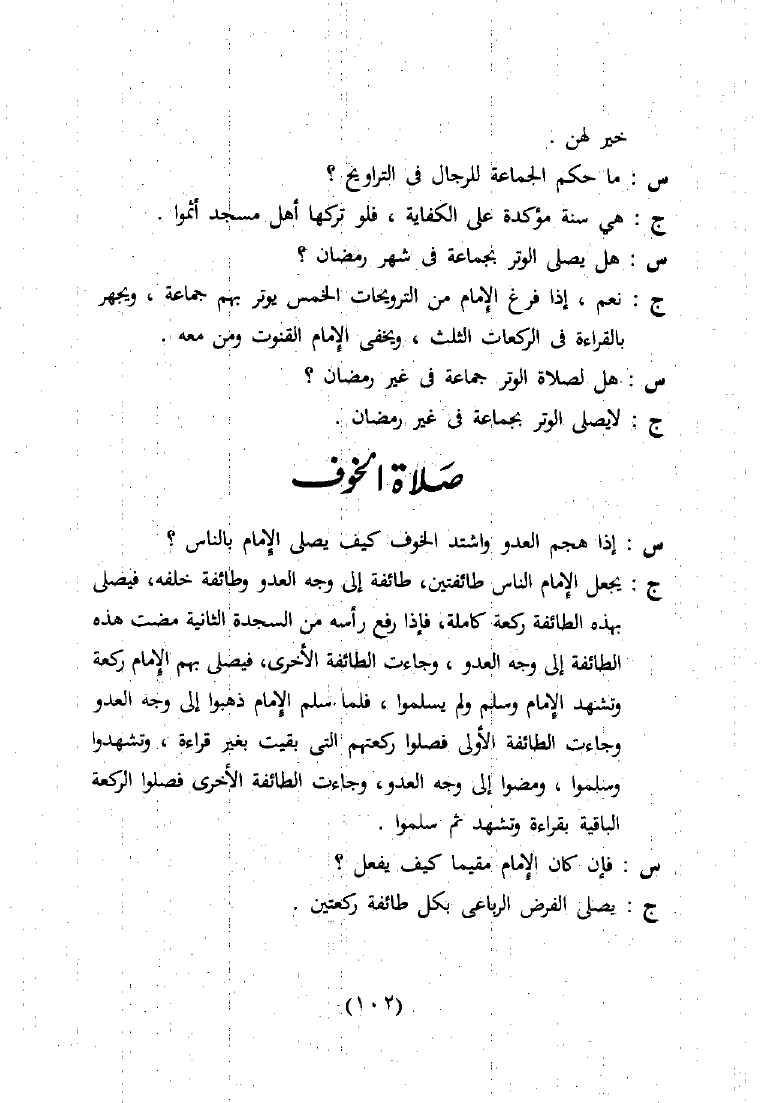 خير لهن .
س : ما حكم الجماعة للرجال فى التراويح ؟
ج : هي سنة مؤكدة على الكفاية ، فلو تركها أهل مسجد أثموا .
س : هل يصلى الوتر بجماعة فى شهر رمضان ؟
ج : نعم ، إذا فرغ الإمام من الترويحات الخمس يوتر بهم جماعة ، ويجهر
بالقراءة فى الركعات الثلث ، ويخفى الإمام القنوت ومن معه .
س : هل لصلاة الوتر جماعة فى غير رمضان ؟
ج : لايصلى الوتر بجماعة فى غير رمضان .
صلاة الخوف
س : إذا هجم العدو واشتد الخوف كيف يصلى الإمام بالناس ؟
ج : يجعل الإمام الناس طائفتين، طائفة إلى وجه العدو وطائفة خلفه، فيصلى
بهذه الطائفة ركعة كاملة، فإذا رفع رأسه من السجدة الثانية مضت هذه
الطائفة إلى وجه العدو ، وجاءت الطائفة الأخرى، فيصلى بهم الإمام ركعة
وتشهد الإمام وسلم ولم يسلموا ، فلما سلم الإمام ذهبوا إلى وجه العدو
وجاءت الطائفة الأولى فصلوا ركعتهم التى بقيت بغير قراءة ، وتشهدوا
وسلموا ، ومضوا إلى وجه العدو، وجاءت الطائفة الأخرى فصلوا الركعة
الباقية بقراءة وتشهد ثم سلموا .
س : فإن كان الإمام مقيما كيف يفعل ؟
ج : يصلى الفرض الرباعى بكل طائفة ركعتين .
(١٠٢)